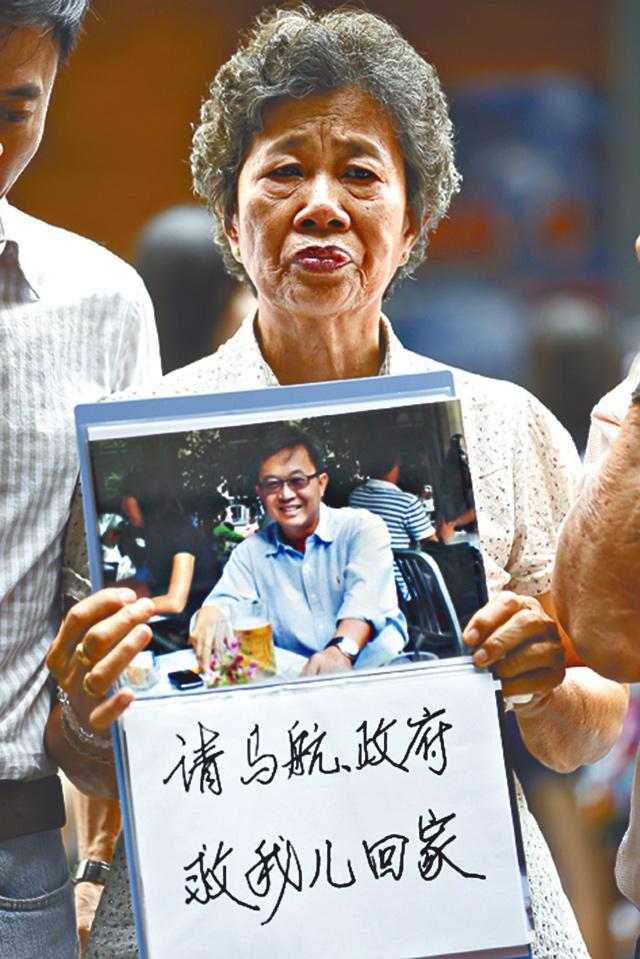 请马航、政府
救我儿回家